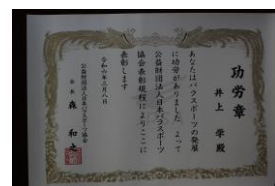 功労章
井上 学 殿
あなたはパラスポーツの発展
に功労がありました よって
公益財団法人日本パラスポーツ
協会表彰規程によりここに
表彰します
令和六年三月八日
公益財団法人日本パラスポーツ協会
会長 森 和之